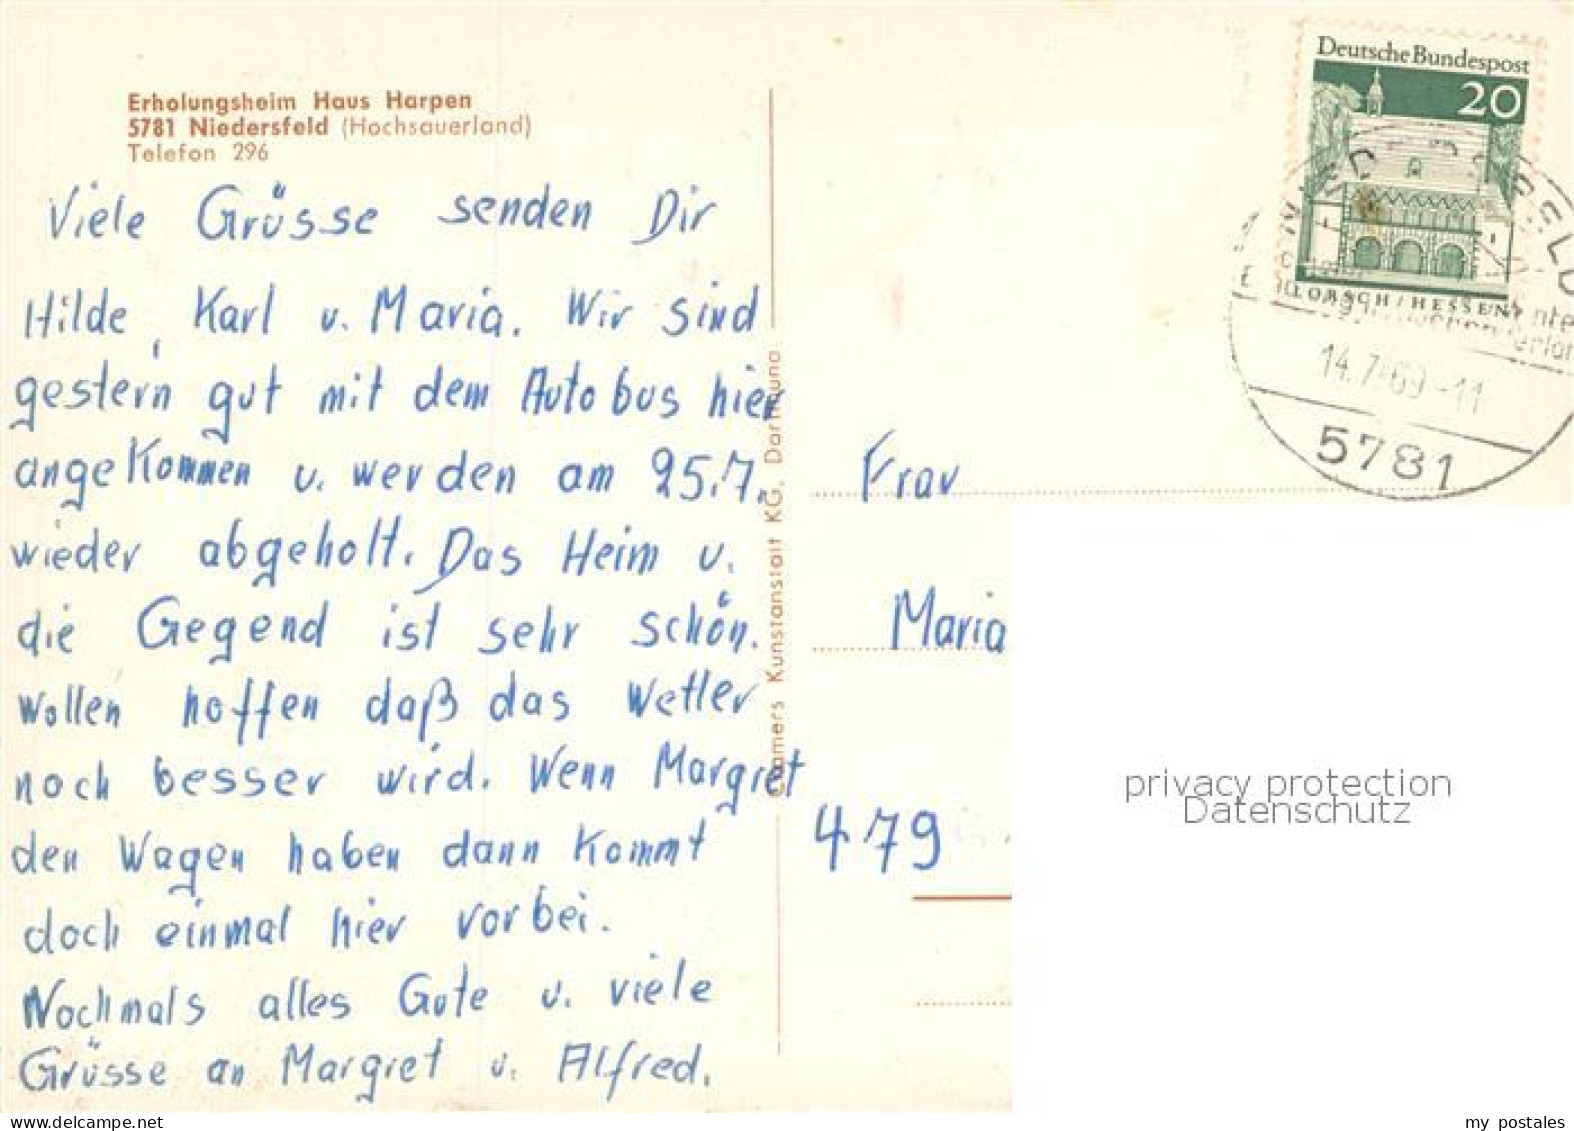 Erholungsheim Haus Harpen
5781 Niedersfeld (Hochsauerland)
Telefon 296
Viele Grüsse senden Dir
Hilde, Karl u. Maria. Wir sind
gestern gut mit dem Autobus hier
angekommen u. werden am 25.7.
wieder abgeholt. Das Heim u.
die Gegend ist sehr schön.
Wollen hoffen daß das Wetter
noch besser wird. Wenn Margret
den Wagen haben dann kommt
doch einmal hier vorbei.
Nochmals alles Gute u. viele
Grüsse an Margret u. Alfred.
Cramers Kunstanstalt KG, Dortmund
Deutsche Bundespost
20
LORSCH/HESSEN
14.7.69-11
5781
Frau
Maria
479
privacy protection
Datenschutz
delcampe.net
my postales